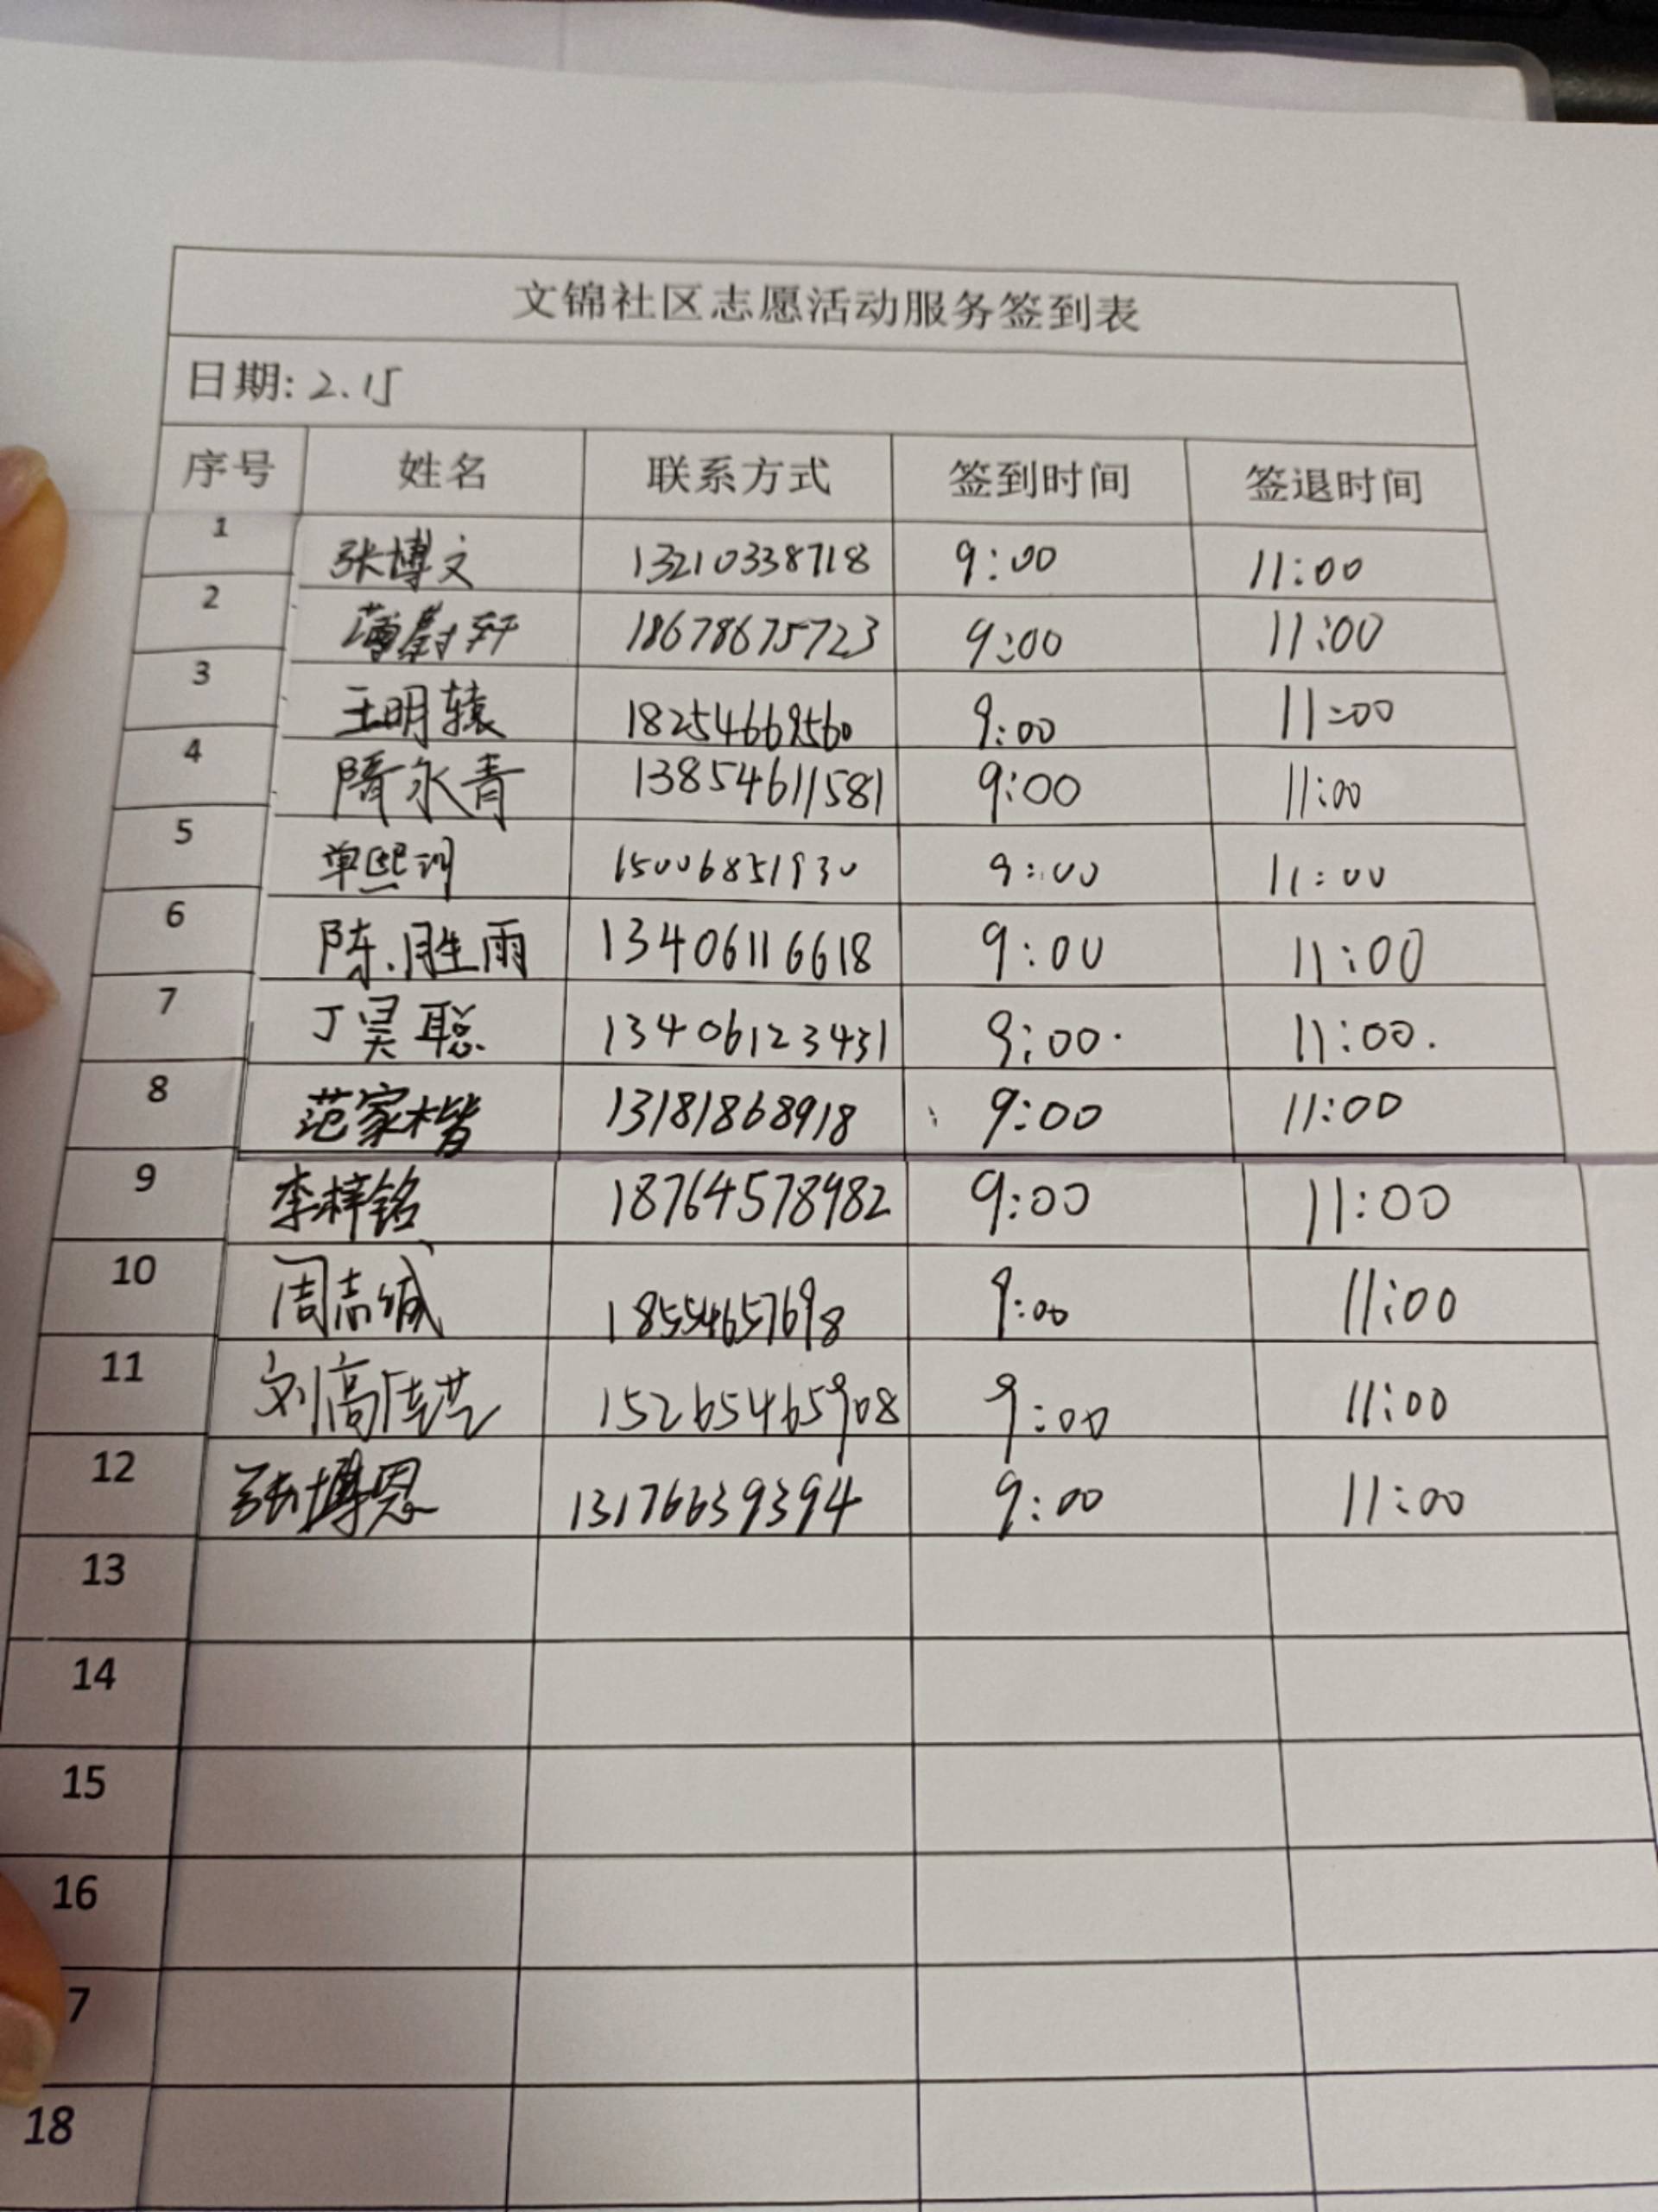 文锦社区志愿活动服务签到表
日期: 2.15
序号 姓名 联系方式 签到时间 签退时间
1 张博文 13210338718 9:00 11:00
2 薄蔚轩 18678675723 9:00 11:00
3 王明辕 18254669560 9:00 11:00
4 隋永青 13854611581 9:00 11:00
5 单熙 15006851930 9:00 11:00
6 陈胜雨 13406116618 9:00 11:00
7 丁昊聪 13406123431 9:00. 11:00.
8 范家楷 13181868918 9:00 11:00
9 李梓铭 18764578982 9:00 11:00
10 周志诚 18554657698 9:00 11:00
11 刘高佳艺 15265465908 9:00 11:00
12 张博恩 13176639394 9:00 11:00
13
14
15
16
7
18